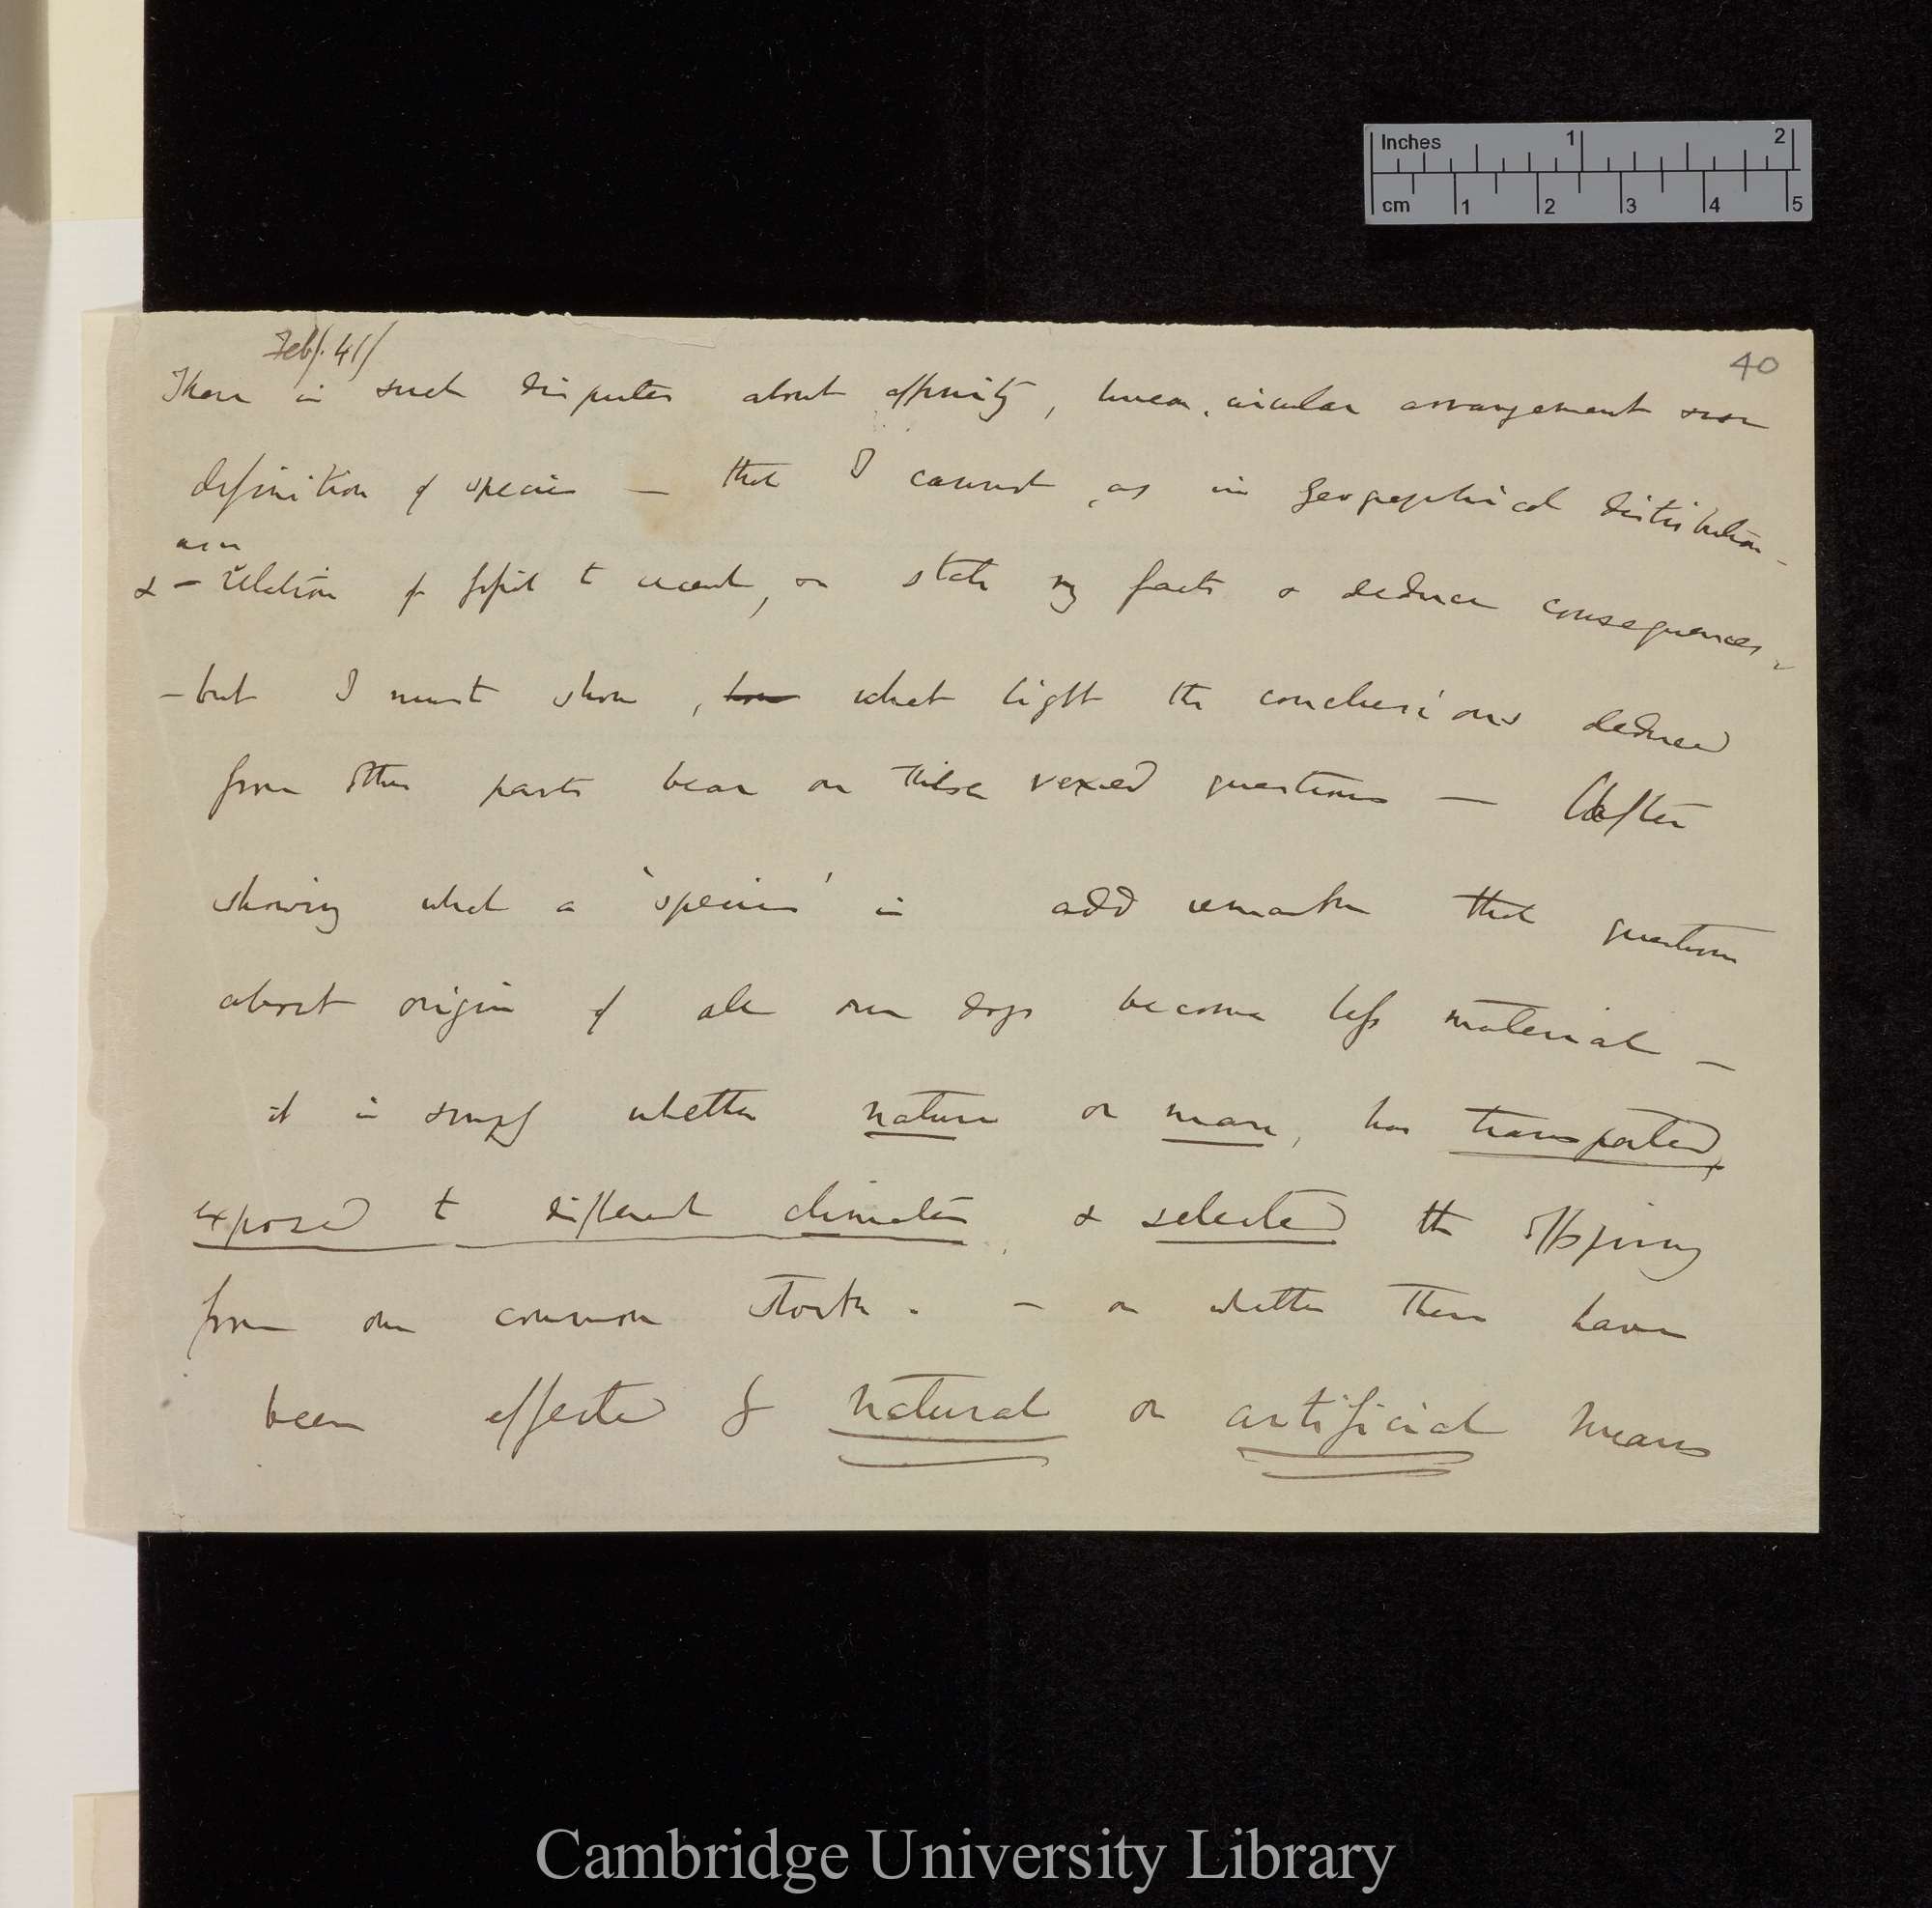 Inches 1 2
cm 1 2 3 4 5
Feb/. 41/
40
There is such disputes about affinity, linear, circular arrangement even
definition of species — that I cannot, as in geographical distribution –
as in
& – relation of fossil to recent, state my facts & deduce consequences,
– but I must show, how what light the conclusions deduced
from other parts bear on these vexed questions — (After
showing what a 'species' is add remarks that questions
about origin of all our dogs become less material —
it is simply whether nature or man, has transported,
exposed to different climates, & selected the offspring
from one common stock. — or whether these have
been effected by natural or artificial means
Cambridge University Library